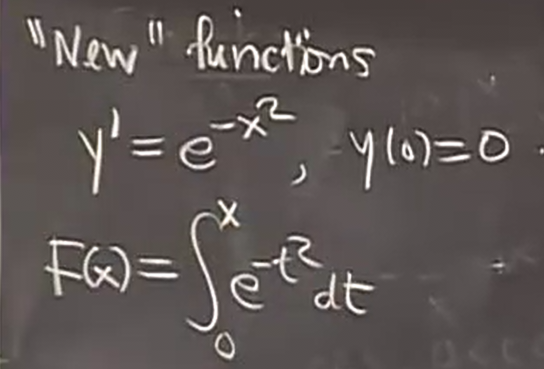 "New" functions
y' = e^{-x^2}, y(0)=0
F(x) = \int_0^x e^{-t^2} dt